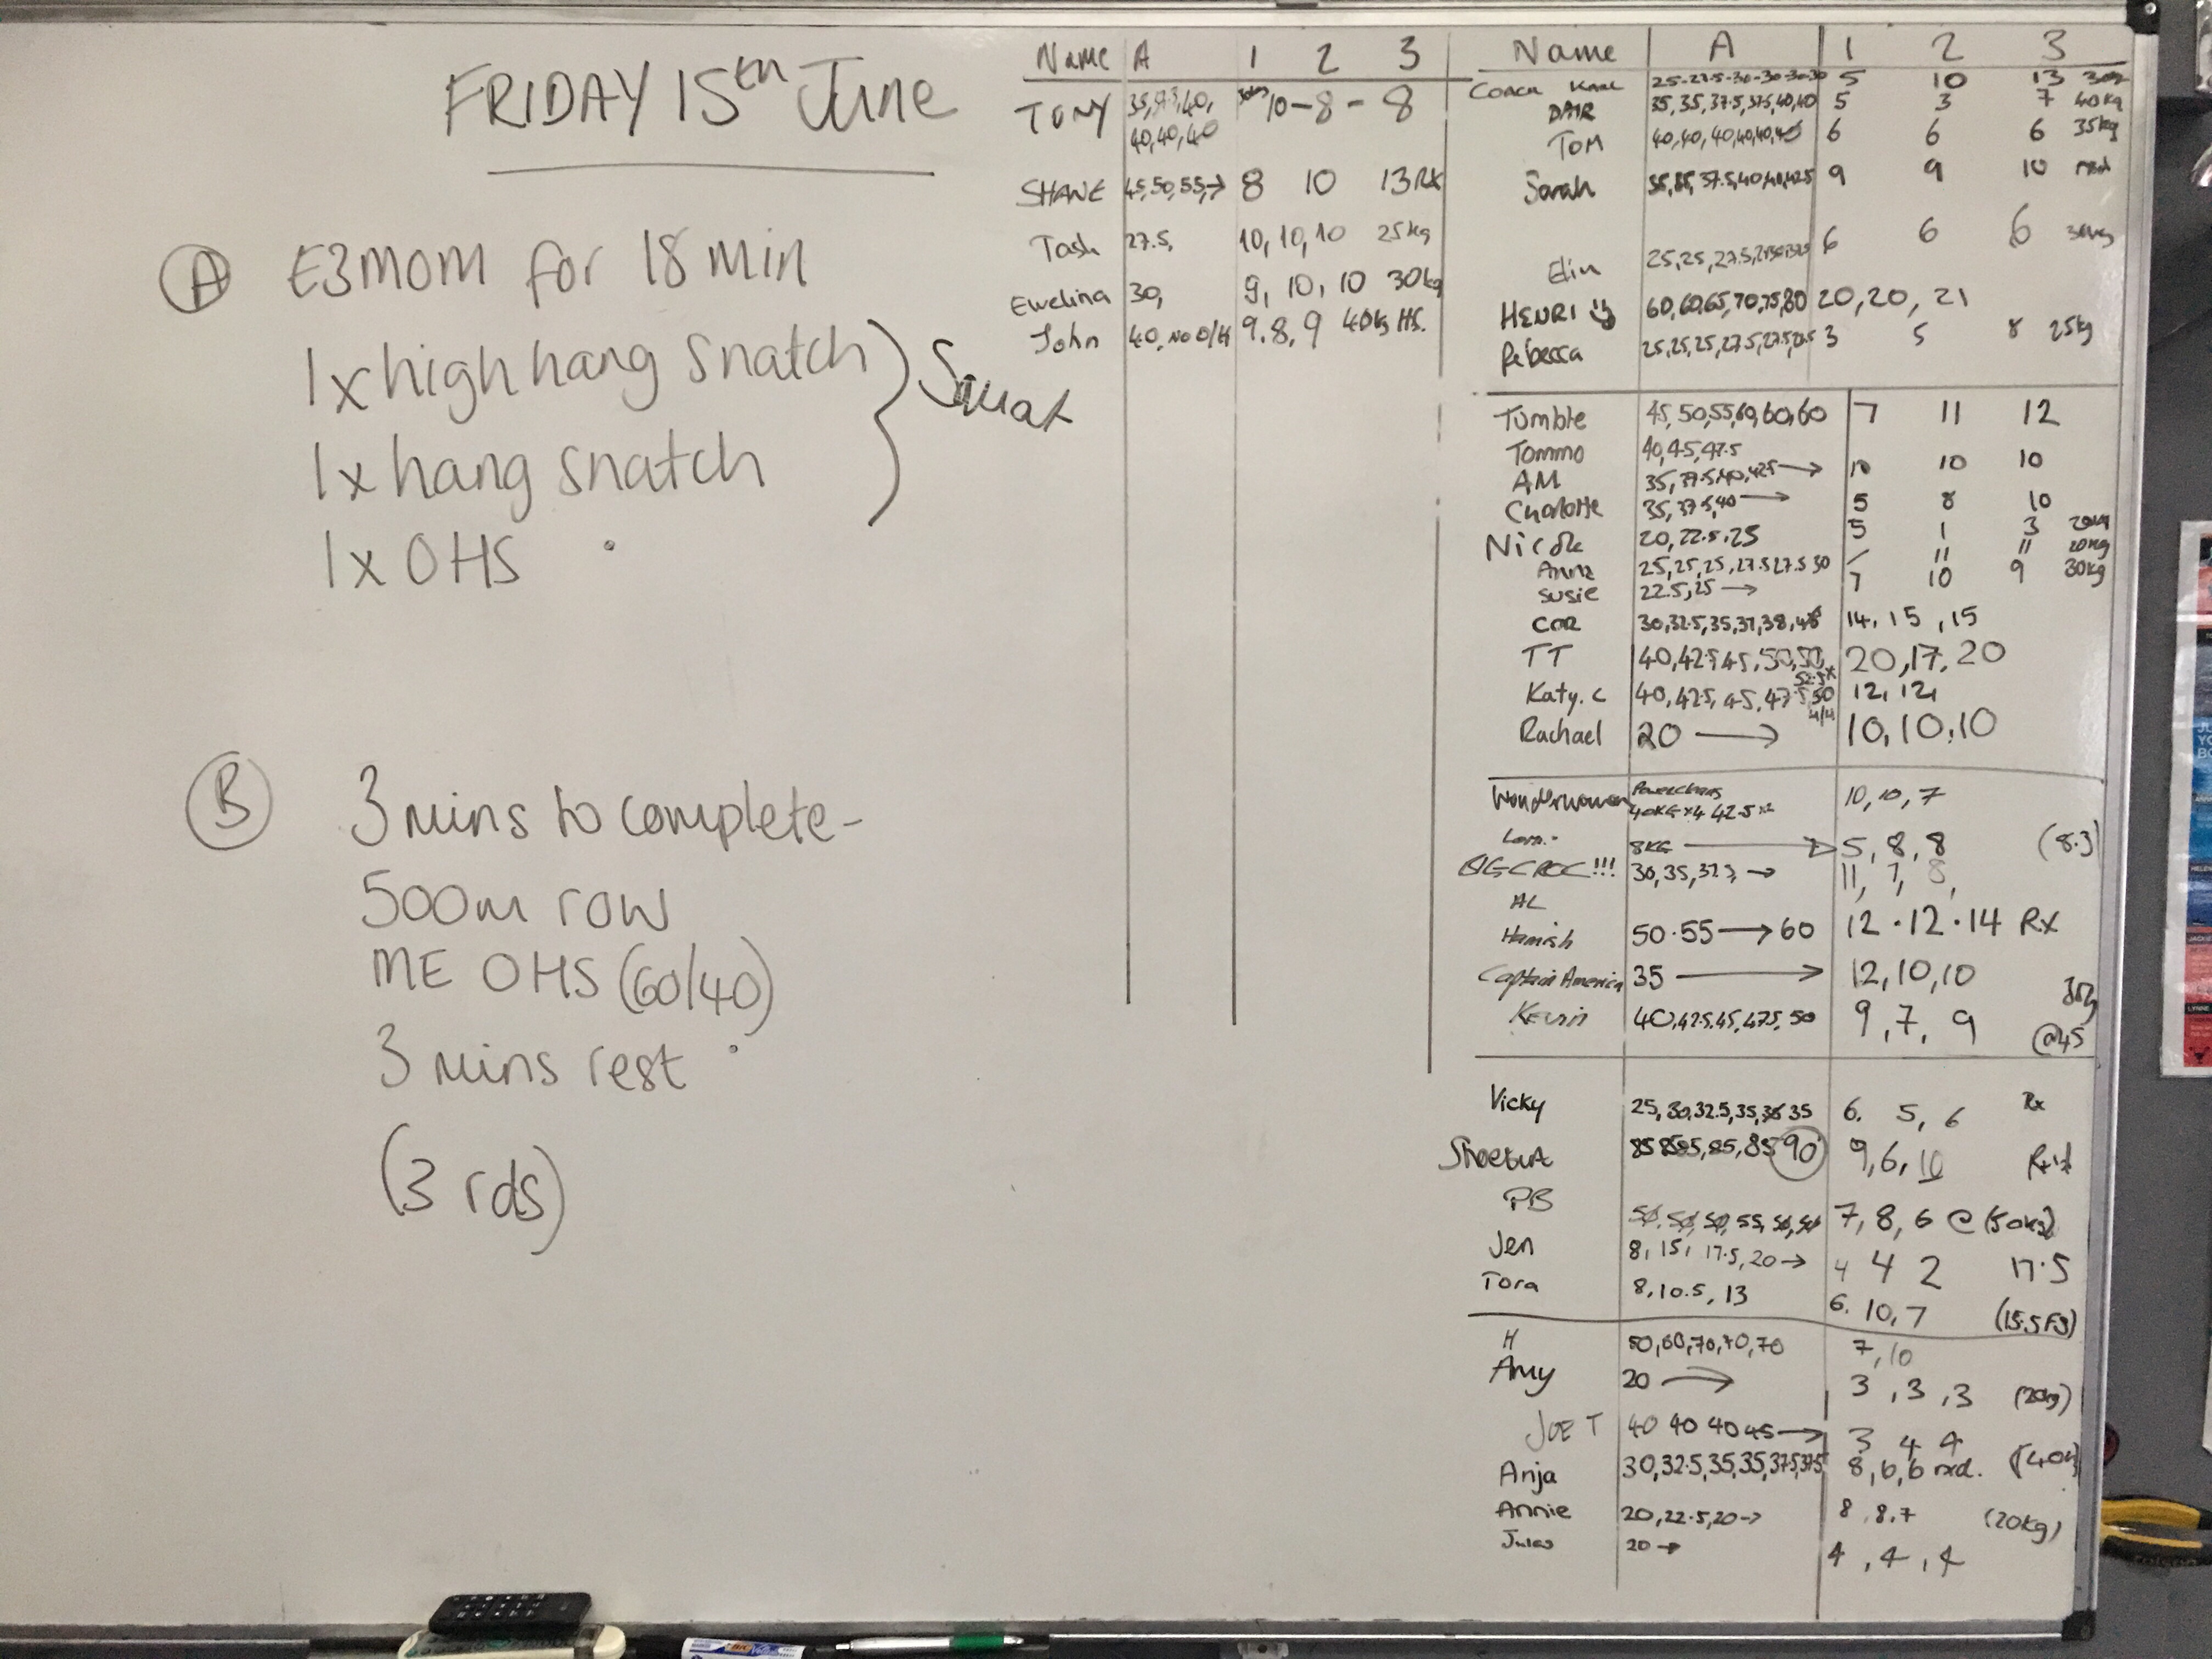 FRIDAY 15th June
A E3MOM for 18 min
1x high hang snatch
1x hang snatch
Squat
1x OHS
B 3 mins to complete-
500m row
ME OHS (60/40)
3 mins rest
(3 rds)
Name A 1 2 3
TONY 35, 40, 10-8-8
40,40,40
SHANE 45,50,55→ 8 10 13 RX
Tash 27.5, 10,10,10 25kg
Ewelina 30, 9, 10, 10 30kg
John 40, NO O/H 9.8,9 40kg HS.
Name A 1 2 3
Coach 25-27.5-30-30-30-30 5 10 13
35,35,37.5,37.5,40,40 5 3 7 40kg
TOM 40,40,40,40,40,40 6 6 6 35kg
Sarah 37.5,40,40,42.5 9 9 10
Elin 25,25,27.5, 6 6 6 30kg
HENRI 60,60,65,70,75,80 20,20, 21
Rebecca 25,25,25,27.5,27.5, 3 5 8 25kg
Tumble 45,50,55,60,60,60 7 11 12
Tommo 40,45,47.5
AM 35,37.5,40,42.5→ 10 10 10
Charlotte 35,37.5,40→ 5 8 10
Nicole 20,22.5,25 5 1 3 20kg
Anna 25,25,25,27.5 27.5 30 / 11 11 20kg
Susie 22.5,25→ 7 10 9 30kg
COR 30,32.5,35,37,38, 14,15,15
TT 40,42.5 45,50,50, 52.5x 20,17,20
Katy.C 40,42.5,45,47.5,50 4/4 12,12,
Rachael 20→ 10,10,10
Wonderwoman Powercleans 40KG x4 42.5 x2 10,10,7
8KG→ 5,8,8 (8.3)
BIG CROC!!! 30,35, → 11, 7, 8,
AL
Hamish 50.55→60 12.12.14 Rx
Captain America 35→ 12,10,10 35kg
Kevin 40,42.5,45,47.5,50 9,7,9 @45
Vicky 25,30,32.5,35,35 35 6. 5, 6 Rx
85 85 85,85,85 90 9,6,10
PB 50,50,50,55,50,50 7,8,6 @(50kg)
Jen 8,15,17.5,20→ 4 4 2 17.5
Tora 8,10.5,13 6. 10,7 (15.5 FS)
H 50,60,70,70,70 7,10
Amy 20→ 3,3,3 (20kg)
JOE T 40 40 40 45→ 3 4 4 (40kg)
Anja 30,32.5,35,35,37.5,37.5 8,6,6 rxd.
Annie 20,22.5,20→ 8,8.7 (20kg)
Jules 20→ 4,4,4